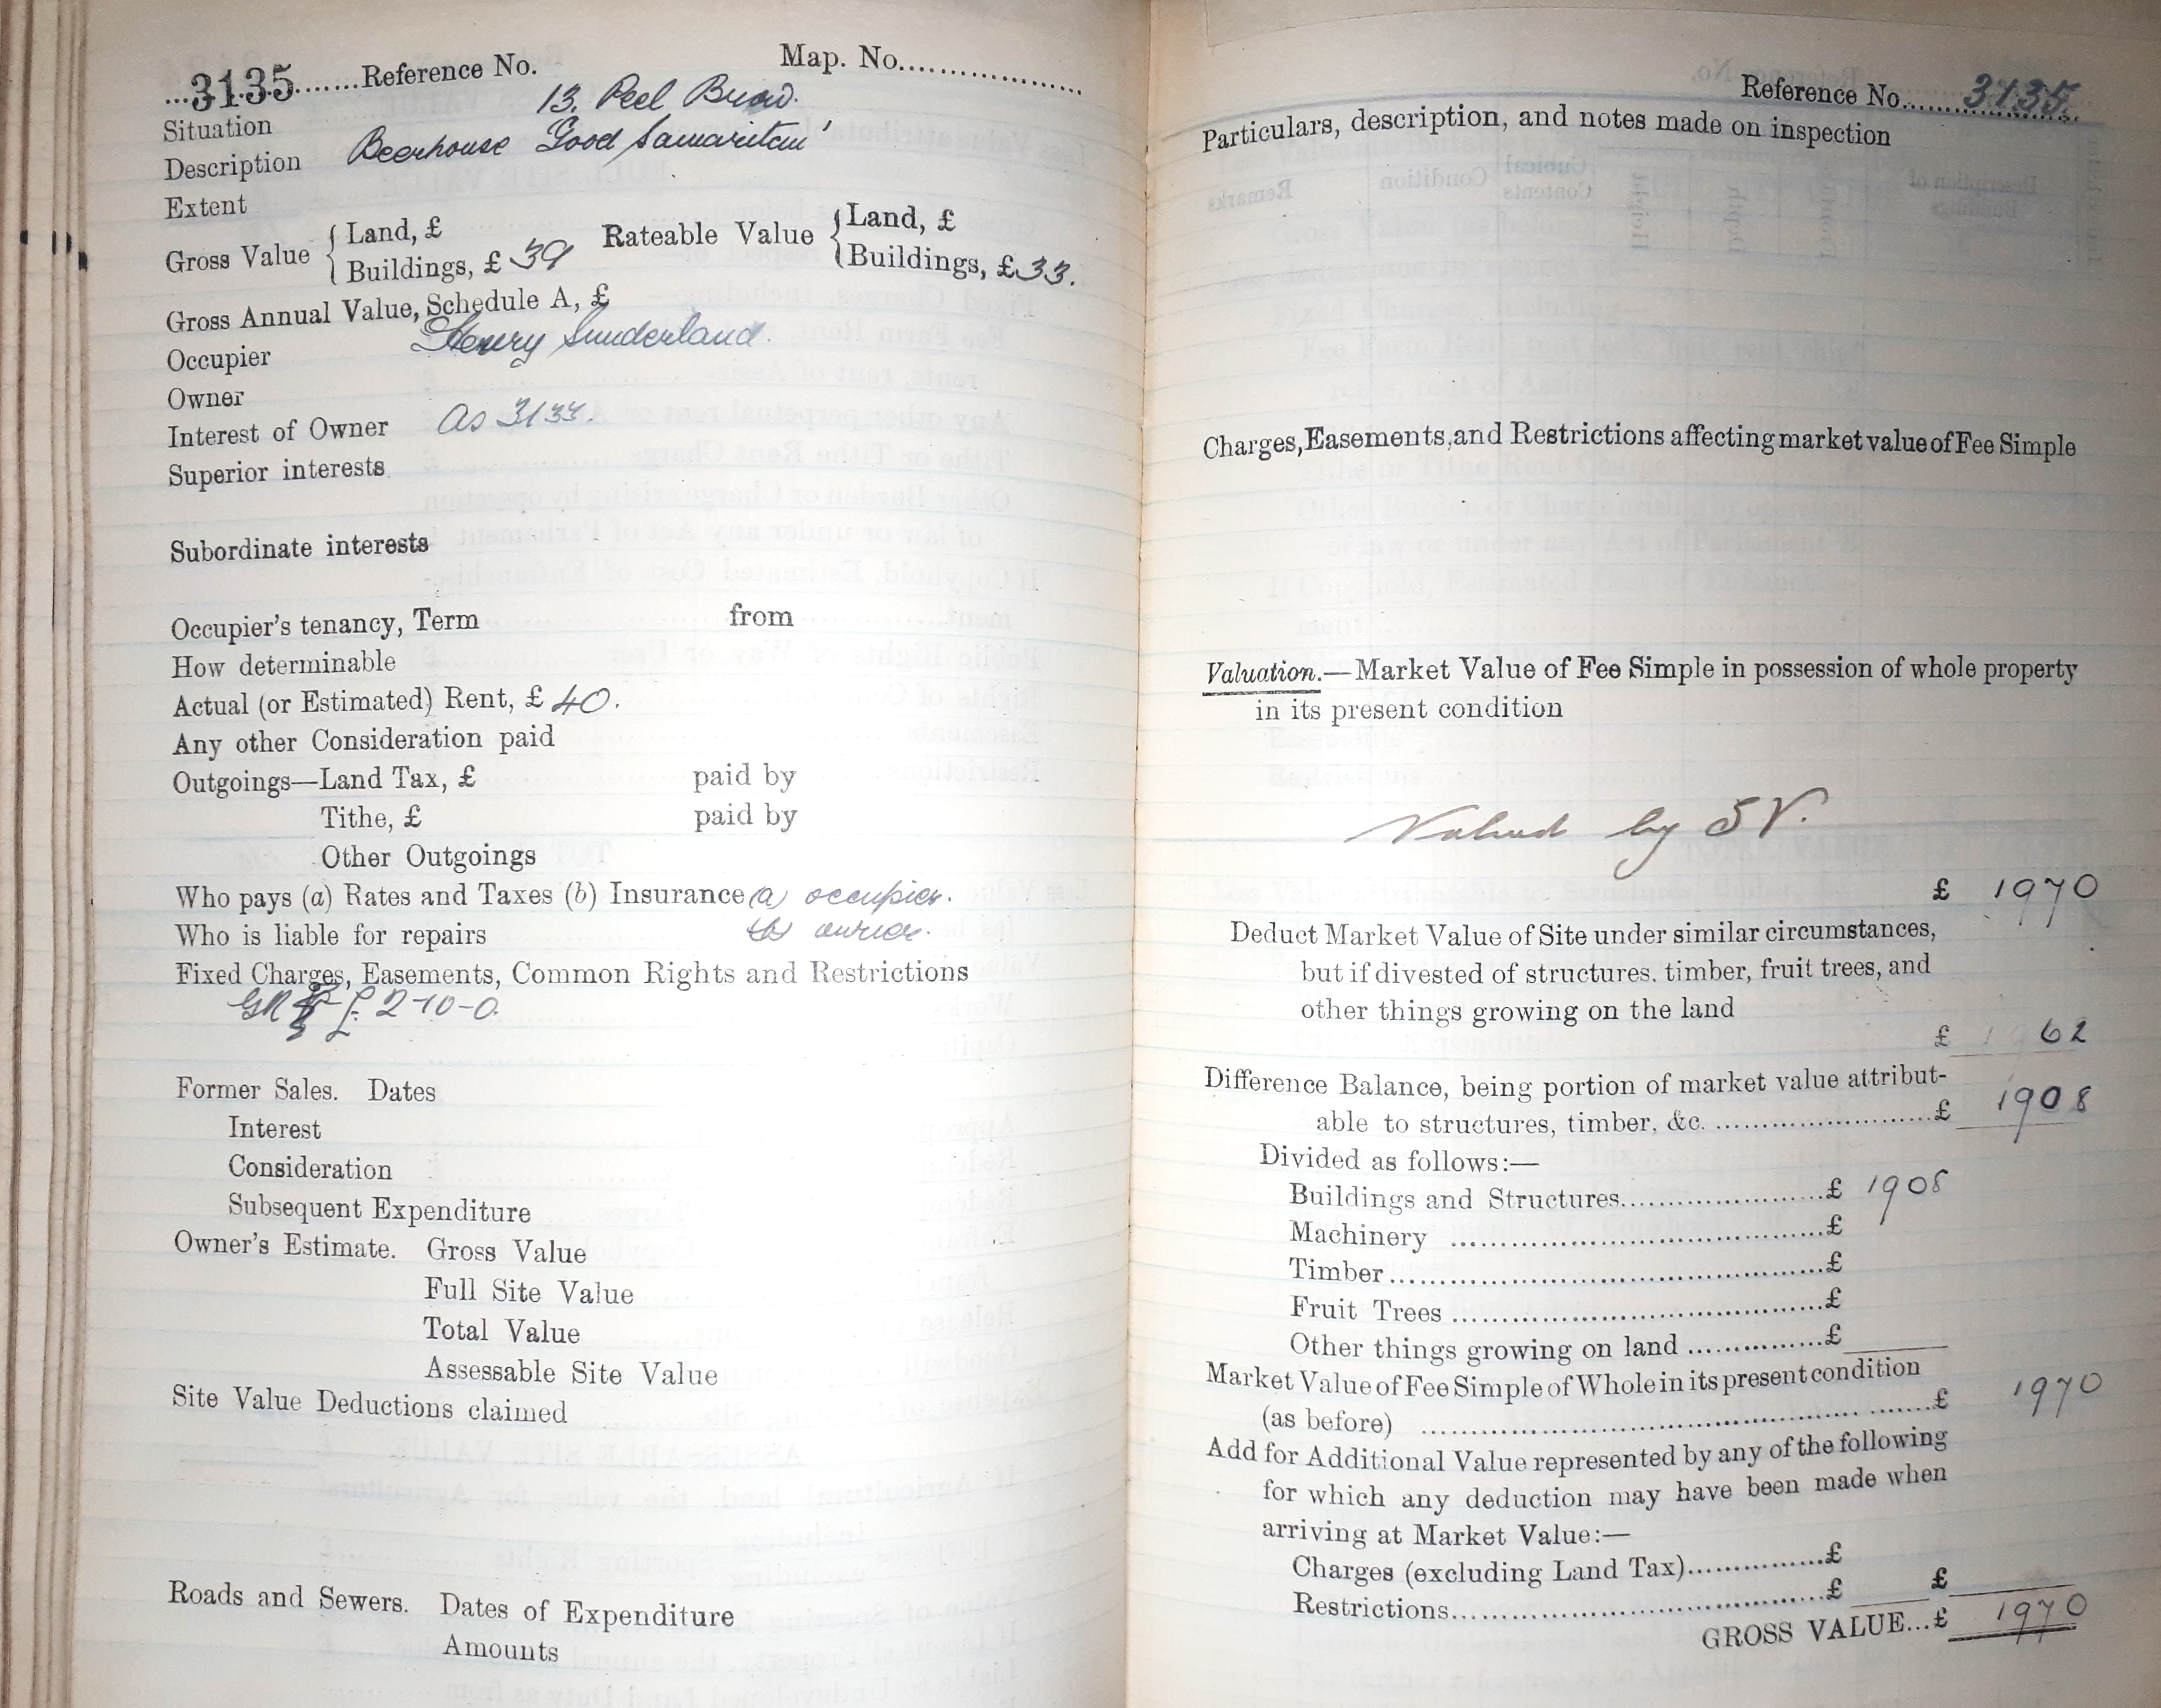 3135 Reference No. Map. No.
Situation 13, Peel Brow.
Description Beerhouse 'Good Samaritan'
Extent
Gross Value { Land, £ Rateable Value { Land, £
Buildings, £ 39 Buildings, £ 33.
Gross Annual Value, Schedule A, £
Occupier Henry Sunderland.
Owner
Interest of Owner As 3133.
Superior interests
Subordinate interests
Occupier's tenancy, Term from
How determinable
Actual (or Estimated) Rent, £ 40.
Any other Consideration paid
Outgoings—Land Tax, £ paid by
Tithe, £ paid by
Other Outgoings
Who pays (a) Rates and Taxes (b) Insurance (a) occupier.
Who is liable for repairs (b) owner.
Fixed Charges, Easements, Common Rights and Restrictions
GR £2-10-0.
Former Sales. Dates
Interest
Consideration
Subsequent Expenditure
Owner's Estimate. Gross Value
Full Site Value
Total Value
Assessable Site Value
Site Value Deductions claimed
Roads and Sewers. Dates of Expenditure
Amounts
Reference No. 3135
Particulars, description, and notes made on inspection
Charges, Easements, and Restrictions affecting market value of Fee Simple
Valuation.—Market Value of Fee Simple in possession of whole property
in its present condition
Valued by S V.
£ 1970
Deduct Market Value of Site under similar circumstances,
but if divested of structures, timber, fruit trees, and
other things growing on the land
£ 62
Difference Balance, being portion of market value attribut-
able to structures, timber, &c. £ 1908
Divided as follows:—
Buildings and Structures £ 1908
Machinery £
Timber £
Fruit Trees £
Other things growing on land £
Market Value of Fee Simple of Whole in its present condition
(as before) £ 1970
Add for Additional Value represented by any of the following
for which any deduction may have been made when
arriving at Market Value:—
Charges (excluding Land Tax) £
Restrictions £ £
GROSS VALUE...£ 1970